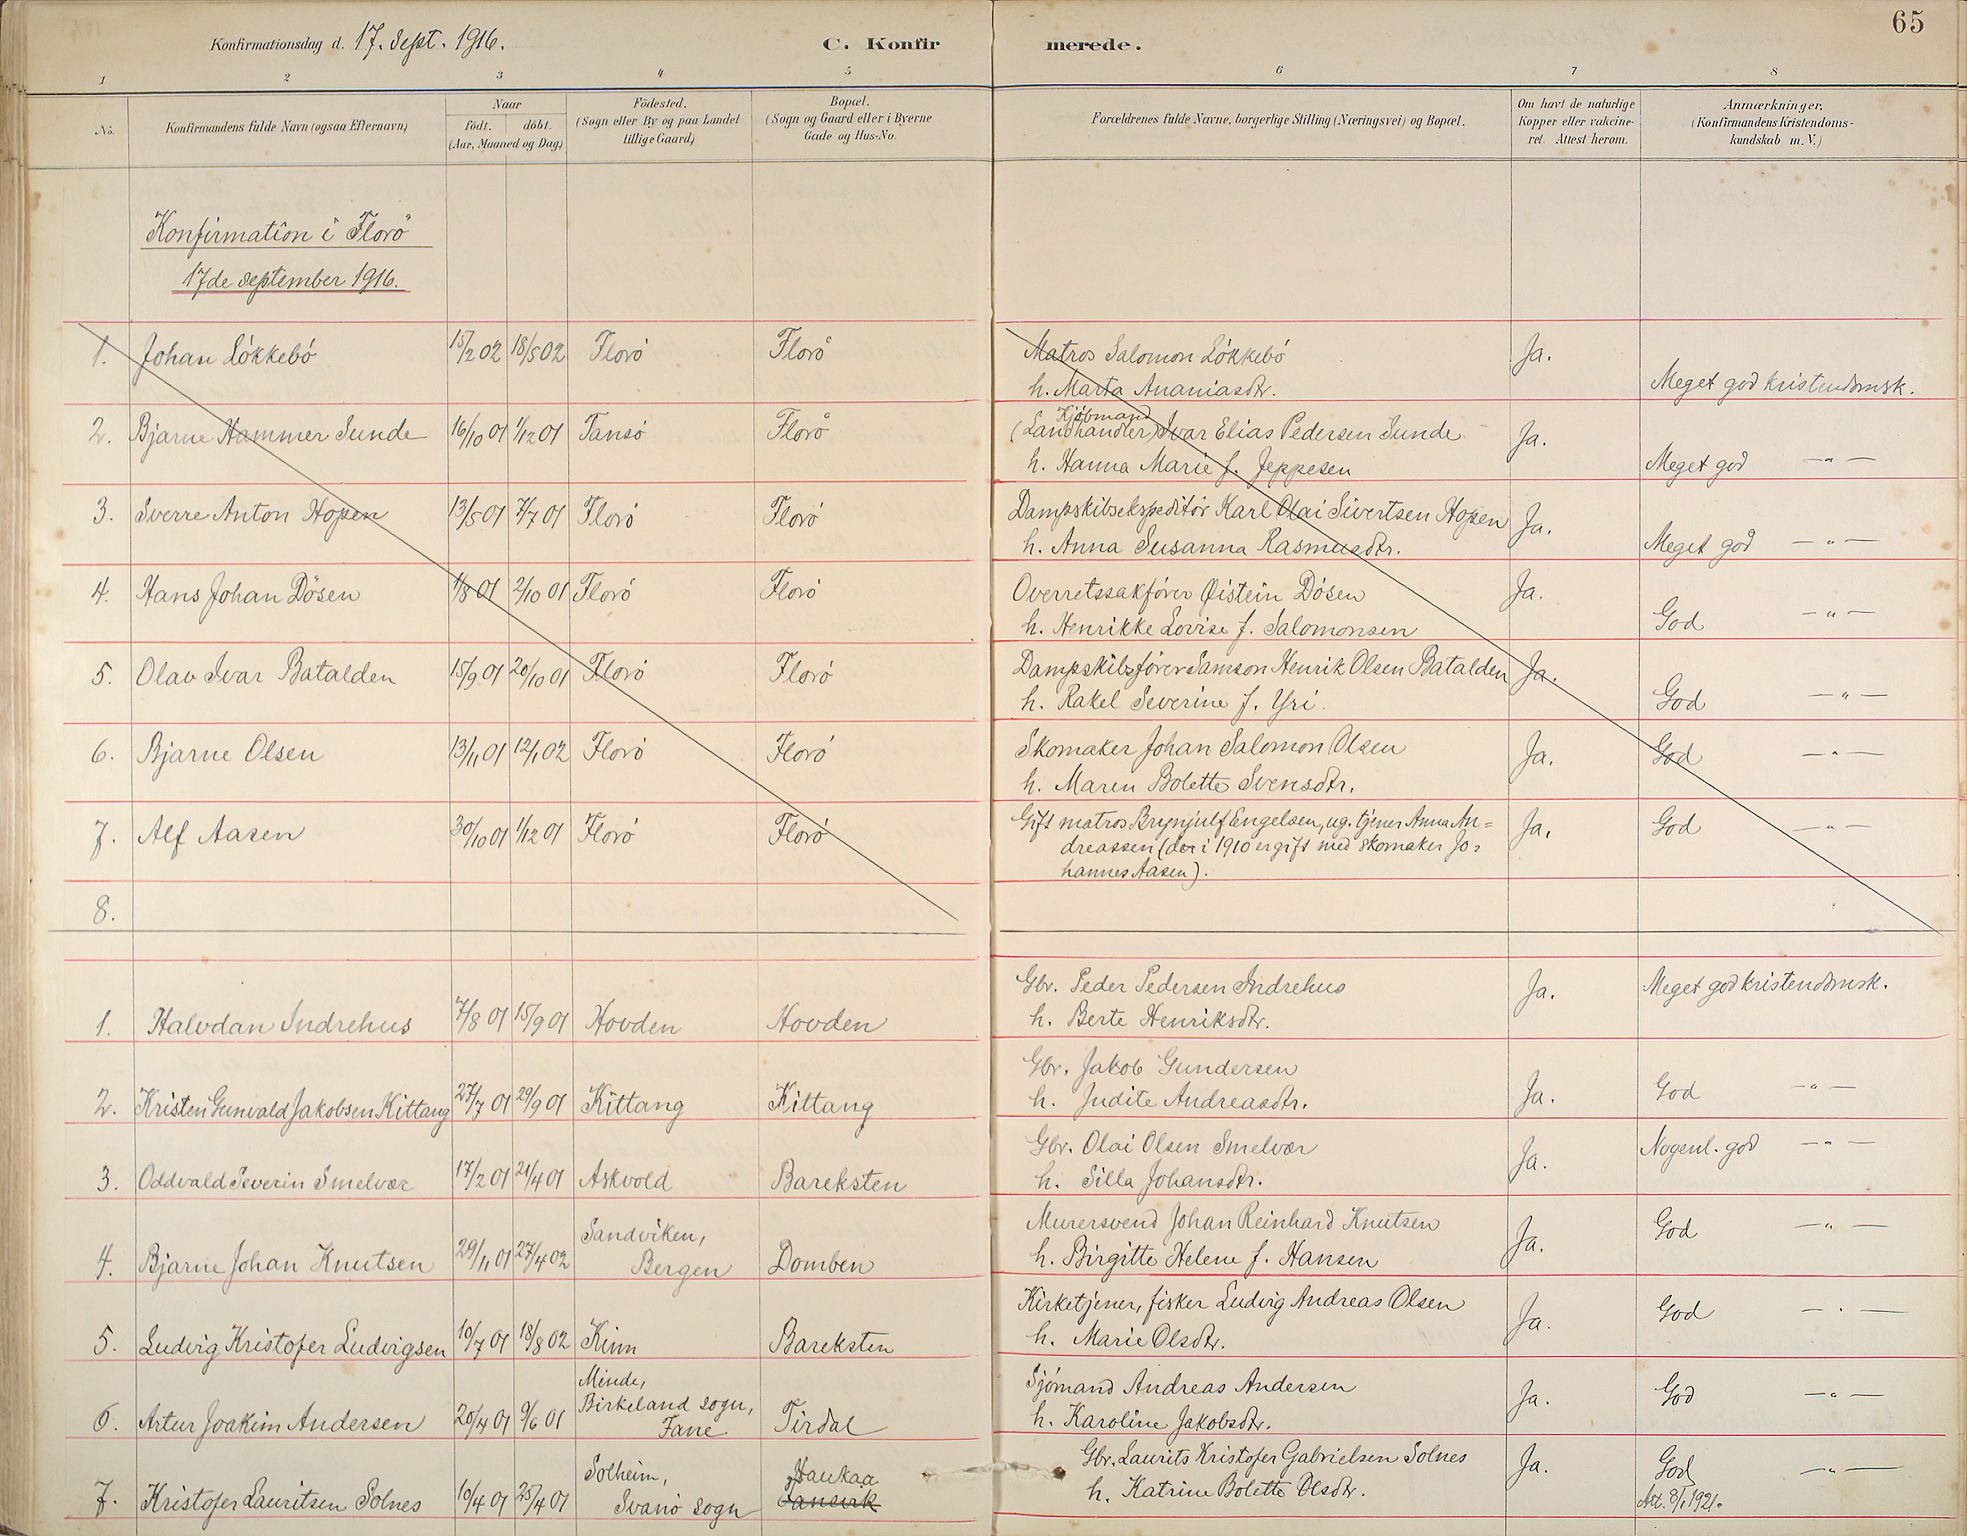 65
Konfirmationsdag d. 17. Sept. 1916.
C. Konfirmerede.
1 2 3 4 5 6 7 8
No.
Konfirmandens fulde Navn (ogsaa Efternavn)
Naar
födt. döbt.
(Aar, Maaned og Dag)
Födested.
(Sogn eller By og paa Landet
tillige Gaard)
Bopæl.
(Sogn og Gaard eller i Byerne
Gade og Hus-No.
Forældrenes fulde Navne, borgerlige Stilling (Næringsvei) og Bopæl.
Om havt de naturlige
Kopper eller vakcine-
ret. Attest herom.
Anmærkninger,
(Konfirmandens Kristendoms-
kundskab m. V.)
Konfirmation i Florö
17de september 1916.
1. Johan Lökkebö 15/2 02 18/5 02 Florö Florö Matros Salomon Lökkebö Ja.
h. Marta Ananiasdtr. Meget god kristendomsk.
Kjöbmand
2. Bjarne Hammer Sunde 16/10 01 1/12 01 Tansö Florö (Landhandler) Ivar Elias Pedersen Sunde Ja.
h. Hanna Marie f. Jeppesen Meget god — „ —
3. Sverre Anton Hopen 13/5 01 7/7 01 Florö Florö Dampskibsekspeditör Karl Olai Sivertsen Hopen Ja.
h. Anna Susanna Rasmusdtr. Meget god — „ —
4. Hans Johan Dösen 1/8 01 2/10 01 Florö Florö Overretssakförer Øistein Dösen Ja.
h. Henrikke Lovise f. Salomonsen God — „ —
5. Olav Ivar Batalden 15/9 01 20/10 01 Florö Florö Dampskibsförer Samson Henrik Olsen Batalden Ja.
h. Rakel Severine f. Yri. God — „ —
6. Bjarne Olsen 13/11 01 12/1 02 Florö Florö Skomaker Johan Salomon Olsen Ja. God — „ —
h. Maren Bolette Svensdtr.
7. Alf Aasen 30/10 01 1/12 01 Florö Florö Gift matros Brynjulf Engelsen, ug. tjener Anna An= Ja. God — „ —
dreassen (der i 1910 er gift med skomaker Jo=
hannes Aasen).
8.
Gbr. Peder Pedersen Indrehus Ja. Meget god kristendomsk.
1. Halvdan Indrehus 7/8 01 15/9 01 Hovden Hovden h. Berte Henriksdtr.
Gbr. Jakob Gundersen God — „ —
2. Kristen Gunvald Jakobsen Kittang 27/7 01 29/9 01 Kittang Kittang h. Judite Andreasdtr. Ja.
Gbr. Olai Olsen Smelvær Nogenl. god — „ —
3. Oddvald Severin Smelvær 17/2 01 21/4 01 Askvold Bareksten h. Silla Johansdtr. Ja.
Sandviken, Murersvend Johan Reinhard Knutsen God — „ —
4. Bjarne Johan Knutsen 29/11 01 27/4 02 Bergen Domben h. Birgitte Helene f. Hansen Ja.
Kirketjener, fisker Ludvig Andreas Olsen Ja. God — „ —
5. Ludvig Kristofer Ludvigsen 10/7 01 18/8 02 Kinn Bareksten h. Marie Olsdtr.
Minde,
Birkeland sogn, Sjömand Andreas Andersen Ja. God — „ —
6. Artur Joakim Andersen 20/4 01 9/6 01 Fane Tirdal h. Karoline Jakobsdtr.
Solheim, Haukaa Gbr. Laurits Kristofer Gabrielsen Solnes Ja. God — „ —
7. Kristofer Lauritsen Solnes 10/4 01 25/4 01 Svanö sogn h. Katrine Bolette Olsdtr. Att. 8/1 1921.